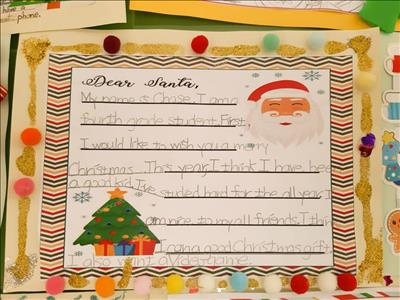 have a
t phone.
Dear Santa,
My name is Chase. I am a
fourth grade student. First,
I would like to wish you a merry
Christmas. This year, I think I have bee
a good kid. I've studed hard for the all year. I
am nice to my all friends. I thin
I can a good Christmas gift
I also want a videogame.